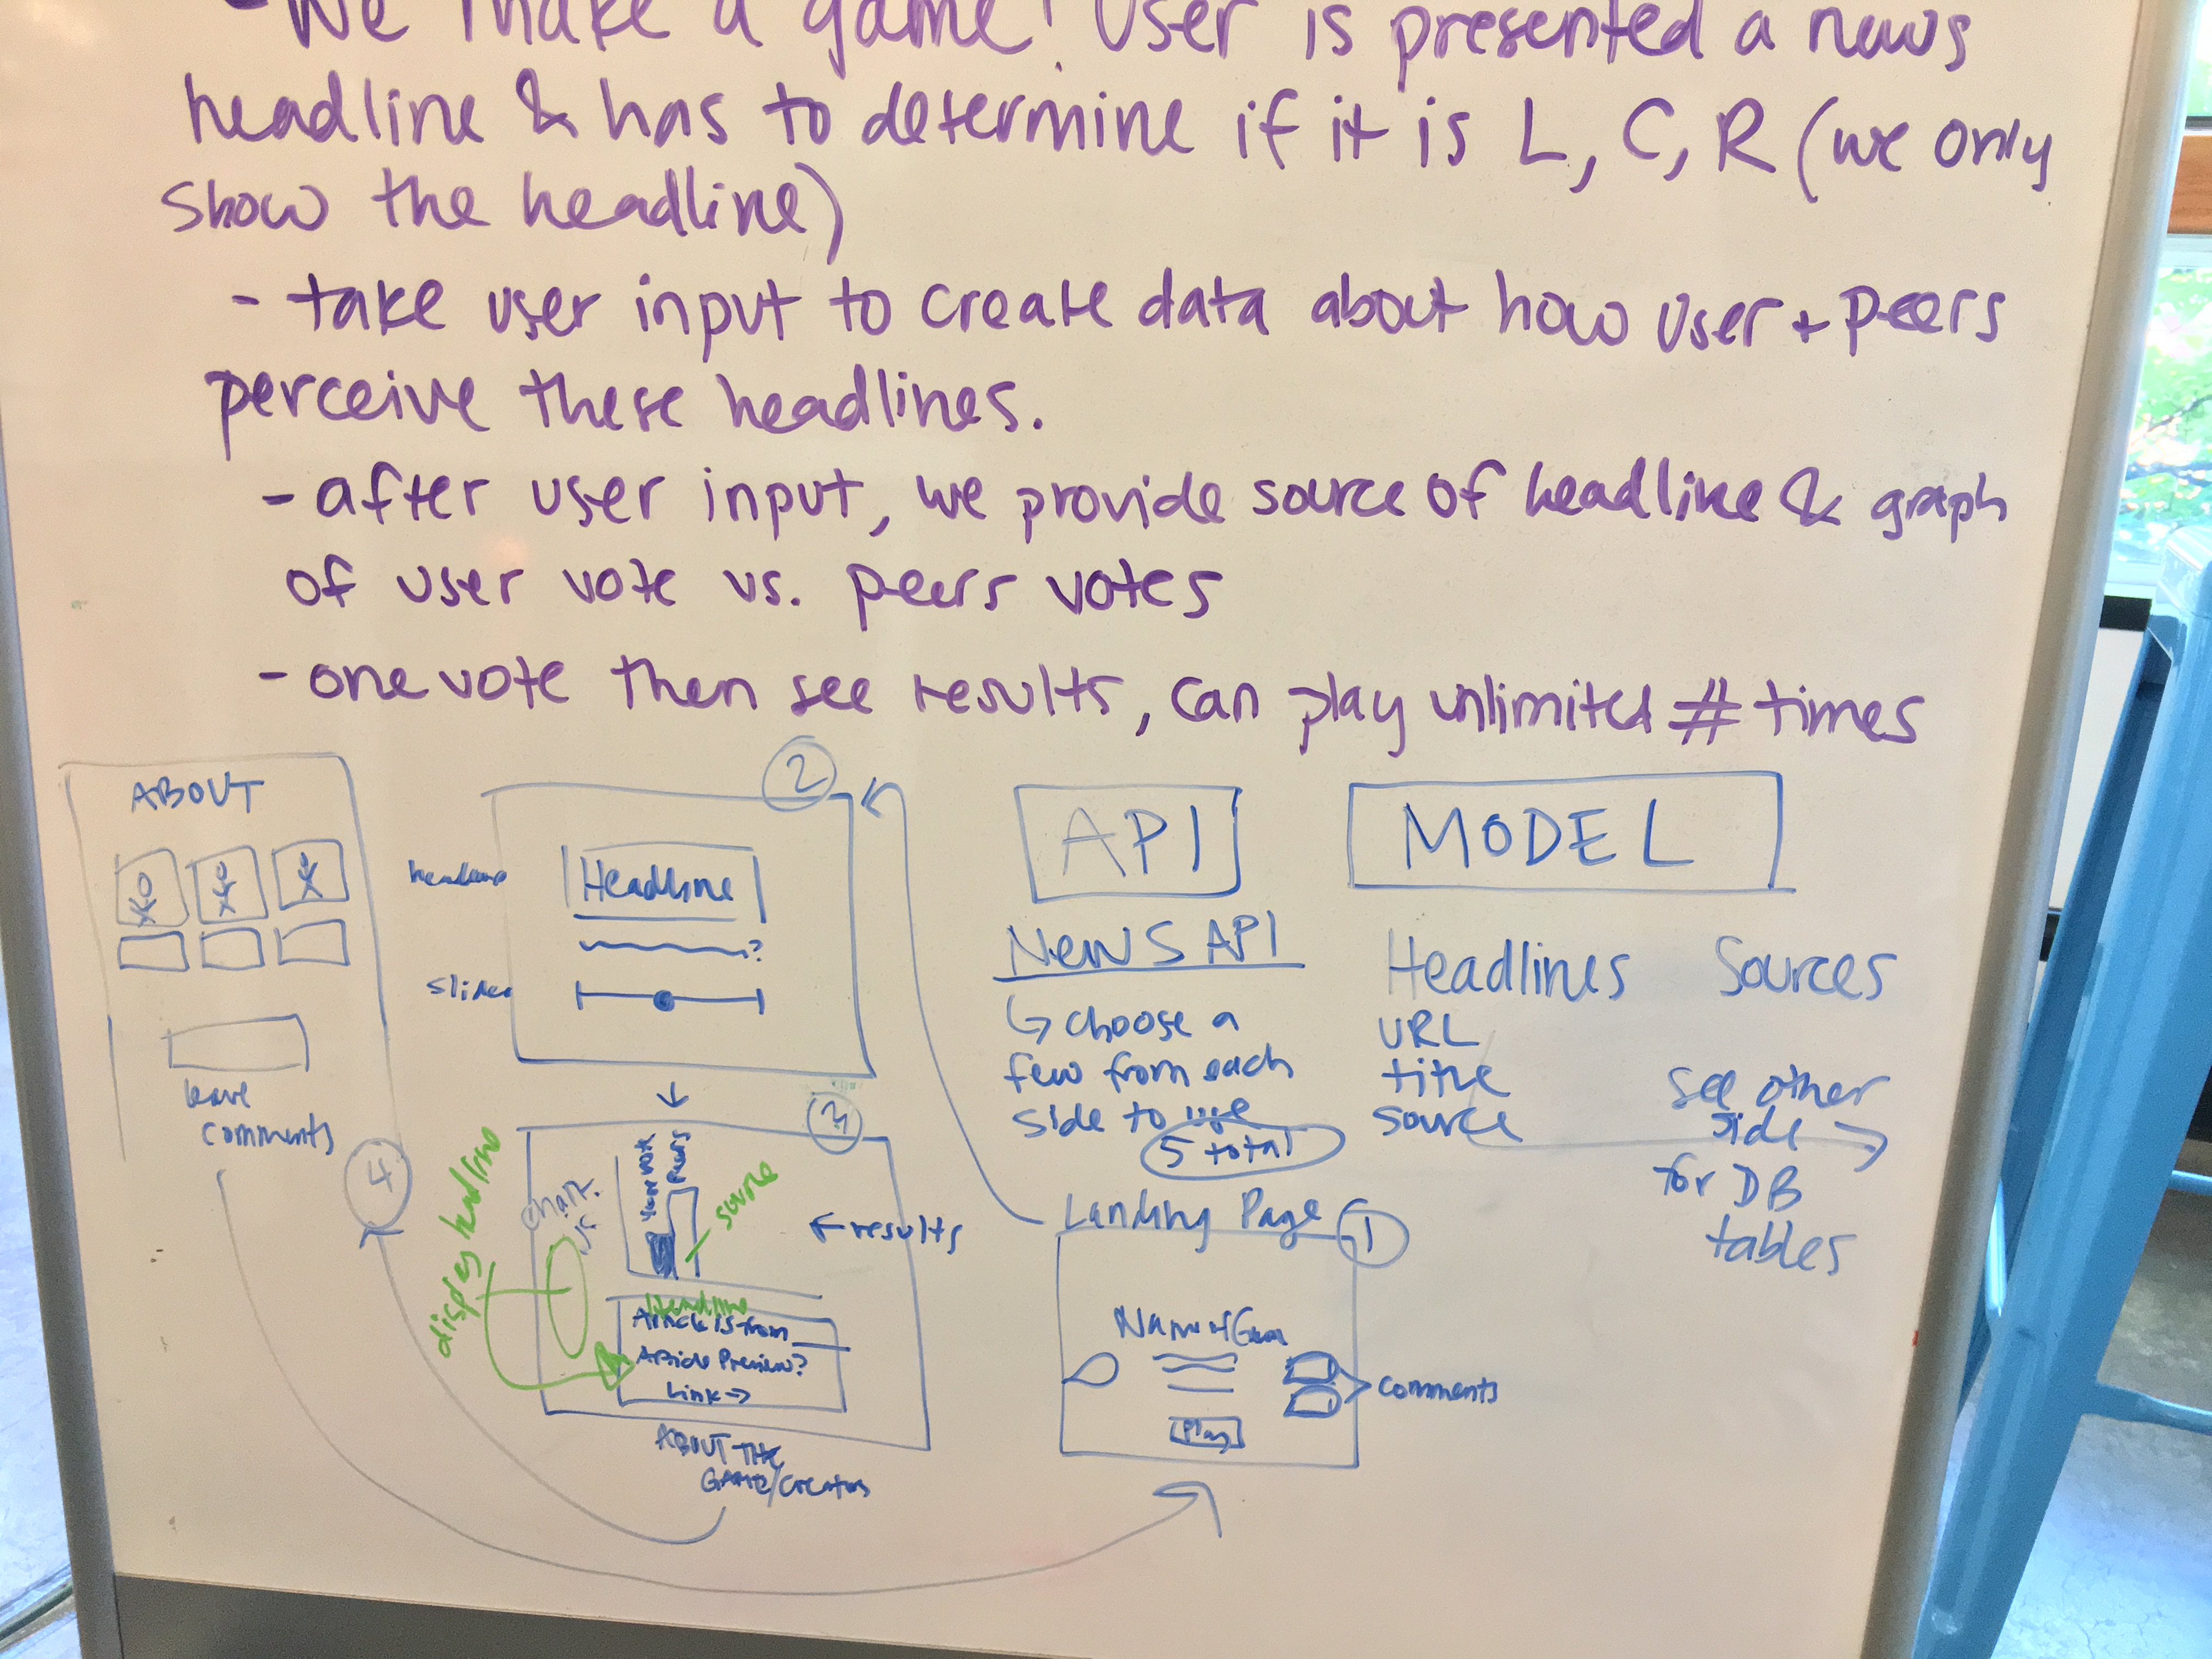 - We make a game! User is presented a news
headline & has to determine if it is L, C, R (we only
show the headline)
- take user input to create data about how user + peers
perceive these headlines.
- after user input, we provide source of headline & graph
of user vote vs. peers votes
- one vote then see results, can play unlimited # times
ABOUT
leave
comments
4
2
headline
Headline
?
slider
3
display headline
chart.
js
your vote
peers
source
← results
Headline
Article is from
Article Preview?
Link →
ABOUT THE
GAME/creators
API
NEWS API
↳ choose a
few from each
side to use
5 total
MODEL
Headlines
URL
title
source
Sources
see other
side
for DB
tables
Landing Page
1
Name of Game
Play
comments